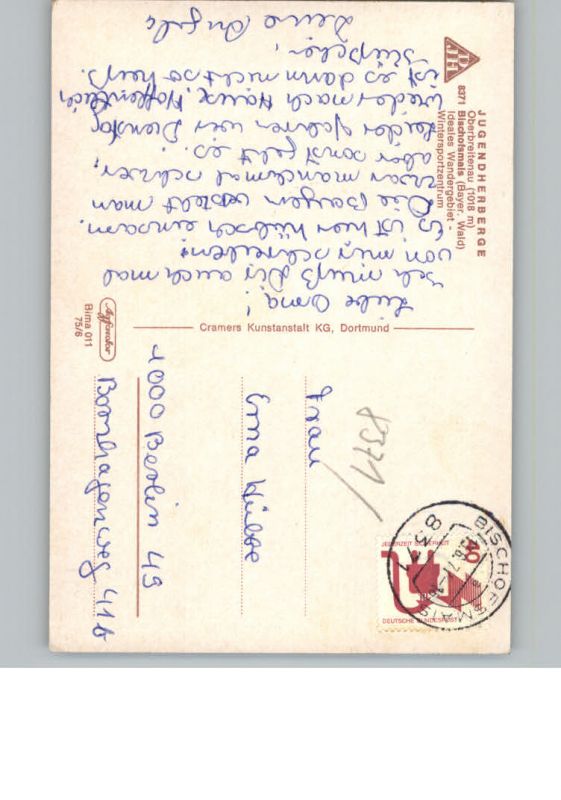 JUGENDHERBERGE
Oberbreitenau (1018 m)
8371 Bischofsmais (Bayer. Wald)
Ideales Wandergebiet -
Wintersportzentrum
DJH
Liebe Oma!
Ich muß Dir auch mal
von mir schreiben!
Es ist hier hübsch einsam.
Die Bayern versteht man
zwar manchmal schwer,
aber sonst geht es.
Leider fahren wir Dienstag
wieder nach Hause. Hoffentlich
ist es dann nicht so heiß.
Tüßchen,
Deine Angela
Cramers Kunstanstalt KG, Dortmund
Agfacolor
Bima 011
75/6
8371
Frau
Erna
1000 Berlin 49
41b
JEDERZEIT SICHERHEIT
40
DEUTSCHE BUNDESPOST
BISCHOFSMAIS